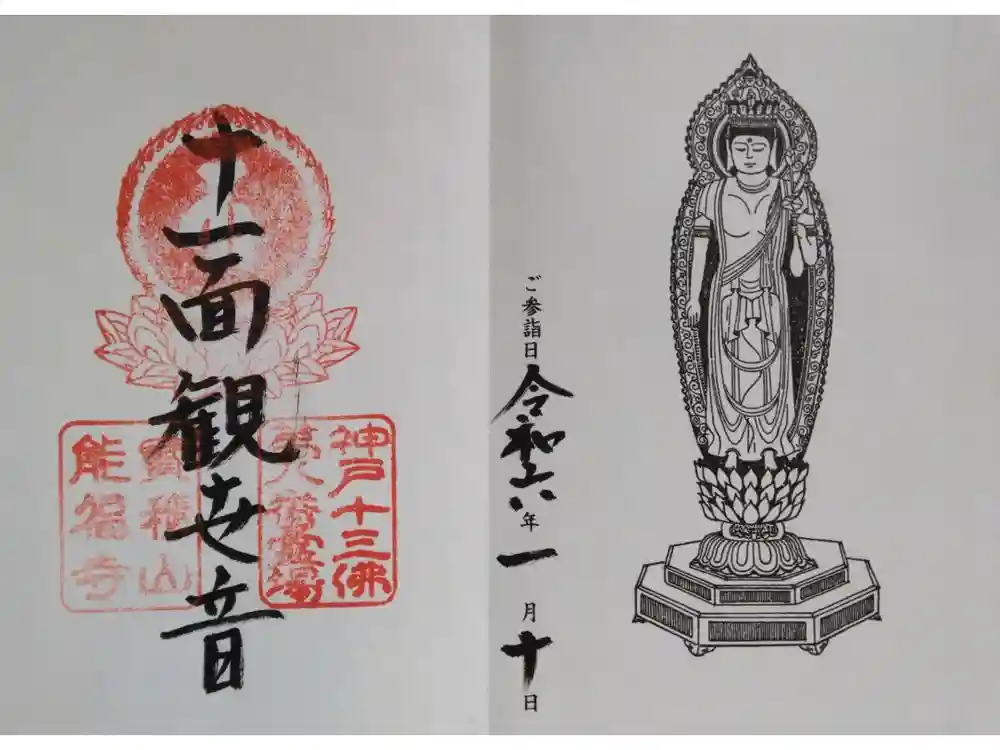 ご参詣日 令和六年一月十日
十一面観世音
神戸十三佛
第八番靈場
寶積山
能福寺